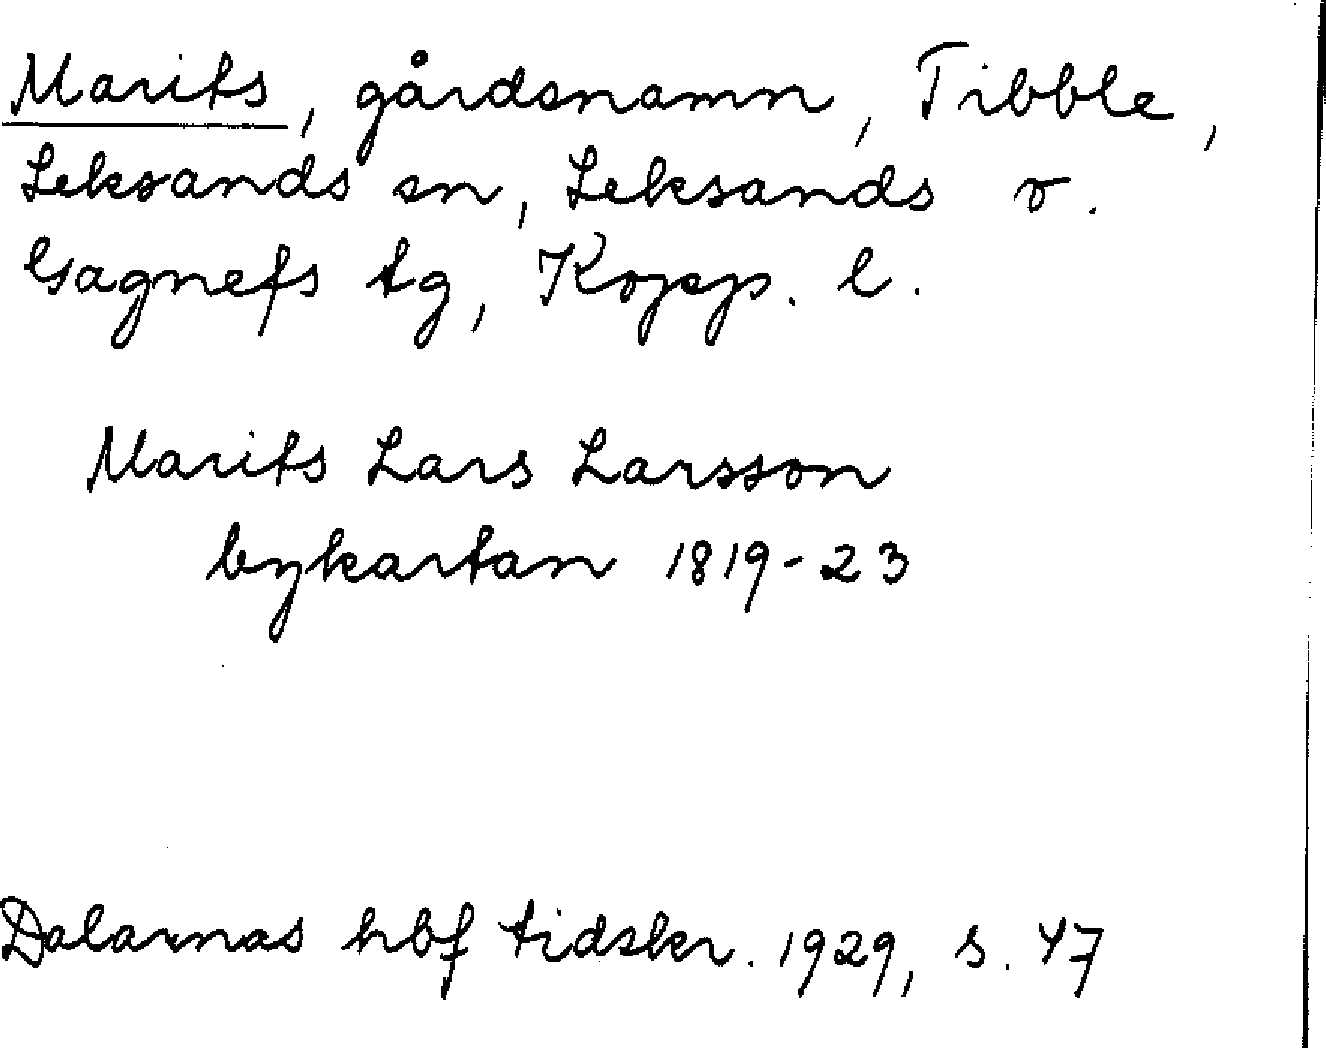 Marits, gårdsnamn, Tibble,
Leksands sn, Leksands o.
Gagnefs tg, Kopp. l.
Marits Lars Larsson
bykartan 1819-23
Dalarnas hbf tidskr. 1929, s. 47